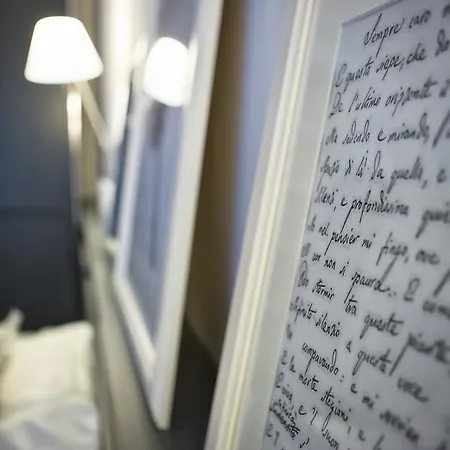 Sempre caro
E questa siepe, che da
De l'ultimo orizzonte il
Ma sedendo e mirando,
spazio di là da quella, e
silenzi, e profondissima quie
nel pensier mi fingo, ove
cor non si spaura. E com
Odo stormir tra queste piante
infinito silenzio a questa voce
comparando: e mi sovvien
e le morte stagioni, e
e il suon